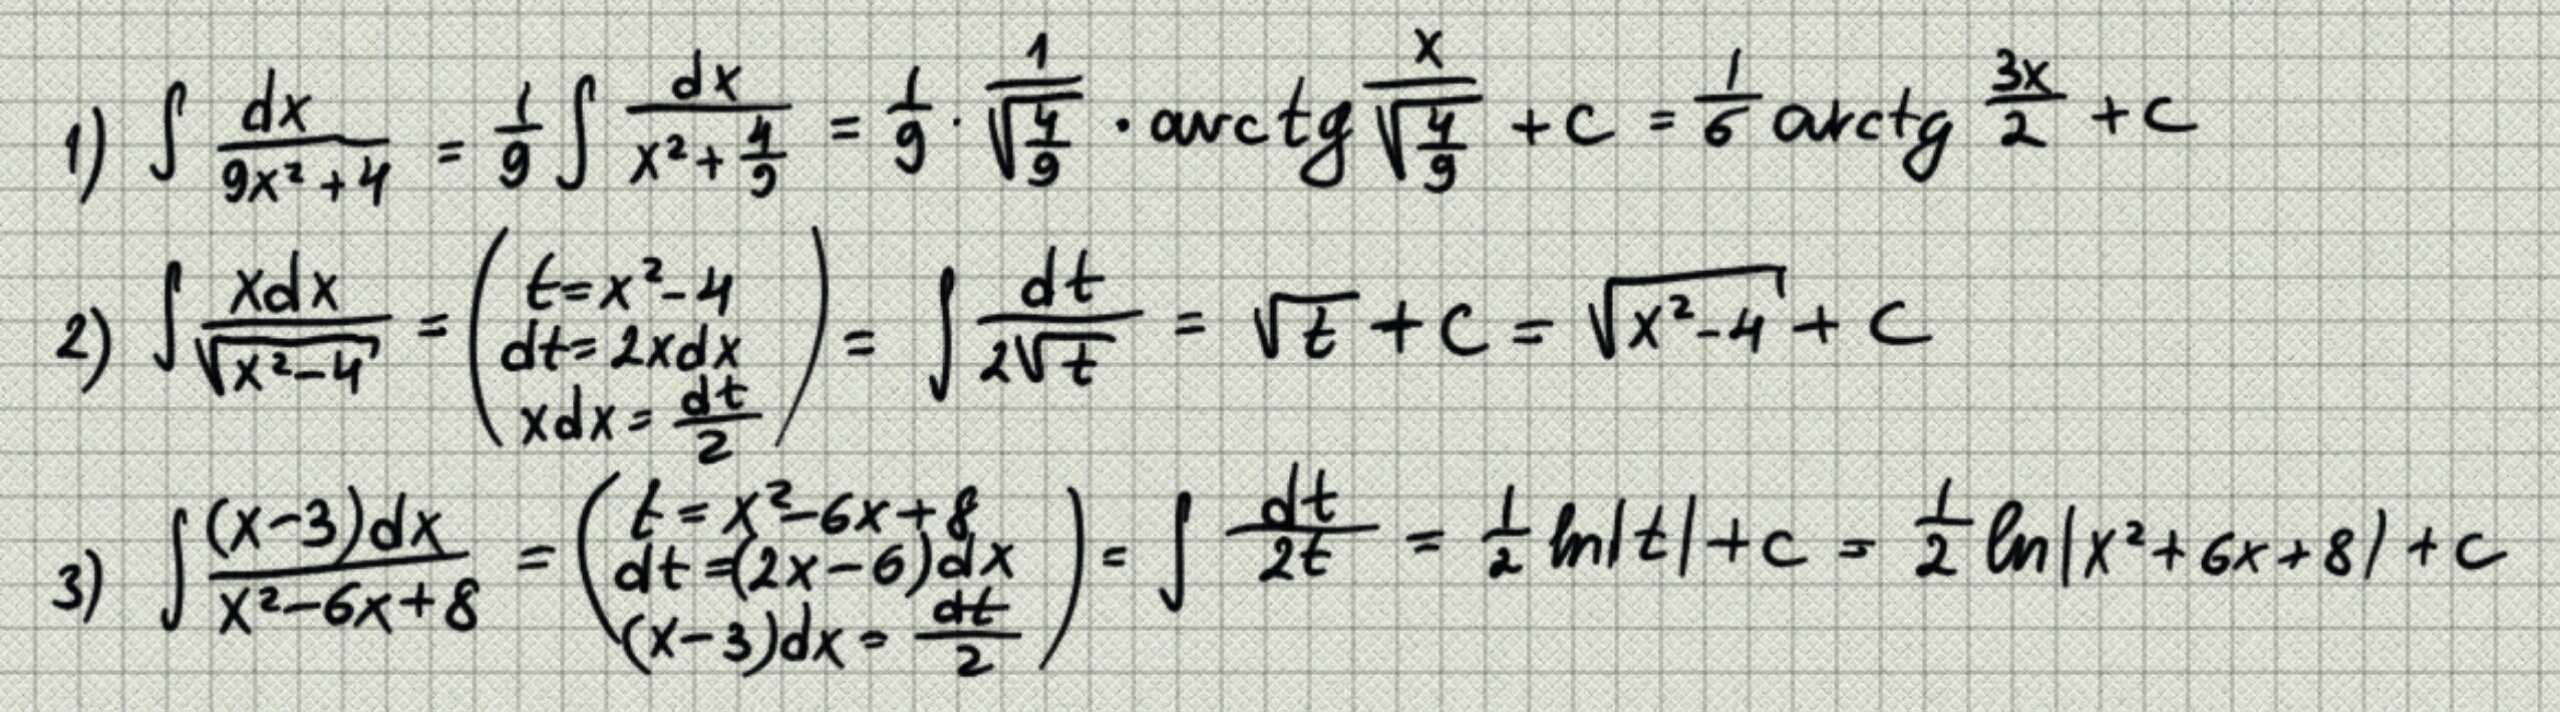 1) ∫ dx/(9x²+4) = 1/9 ∫ dx/(x² + 4/9) = 1/9 · 1/√(4/9) · arctg x/√(4/9) + C = 1/6 arctg 3x/2 + C
2) ∫ xdx/√(x²-4) = (t = x²-4; dt = 2xdx; xdx = dt/2) = ∫ dt/(2√t) = √t + C = √(x²-4) + C
3) ∫ (x-3)dx/(x²-6x+8) = (t = x²-6x+8; dt = (2x-6)dx; (x-3)dx = dt/2) = ∫ dt/2t = 1/2 ln|t| + C = 1/2 ln|x²+6x+8| + C